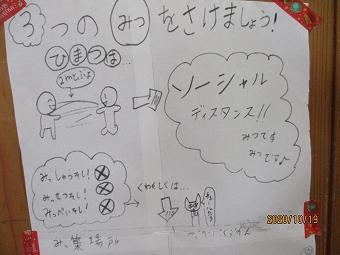 3つのみつをさけましょう!
ひまつは…
2mとぶよ
ソーシャル
ディスタンス!!
みつです
みつです♪
みっしゅうなし!
みつせつなし!
みっぺいなし!
くわしくは…
み、集場所
2020/10/19